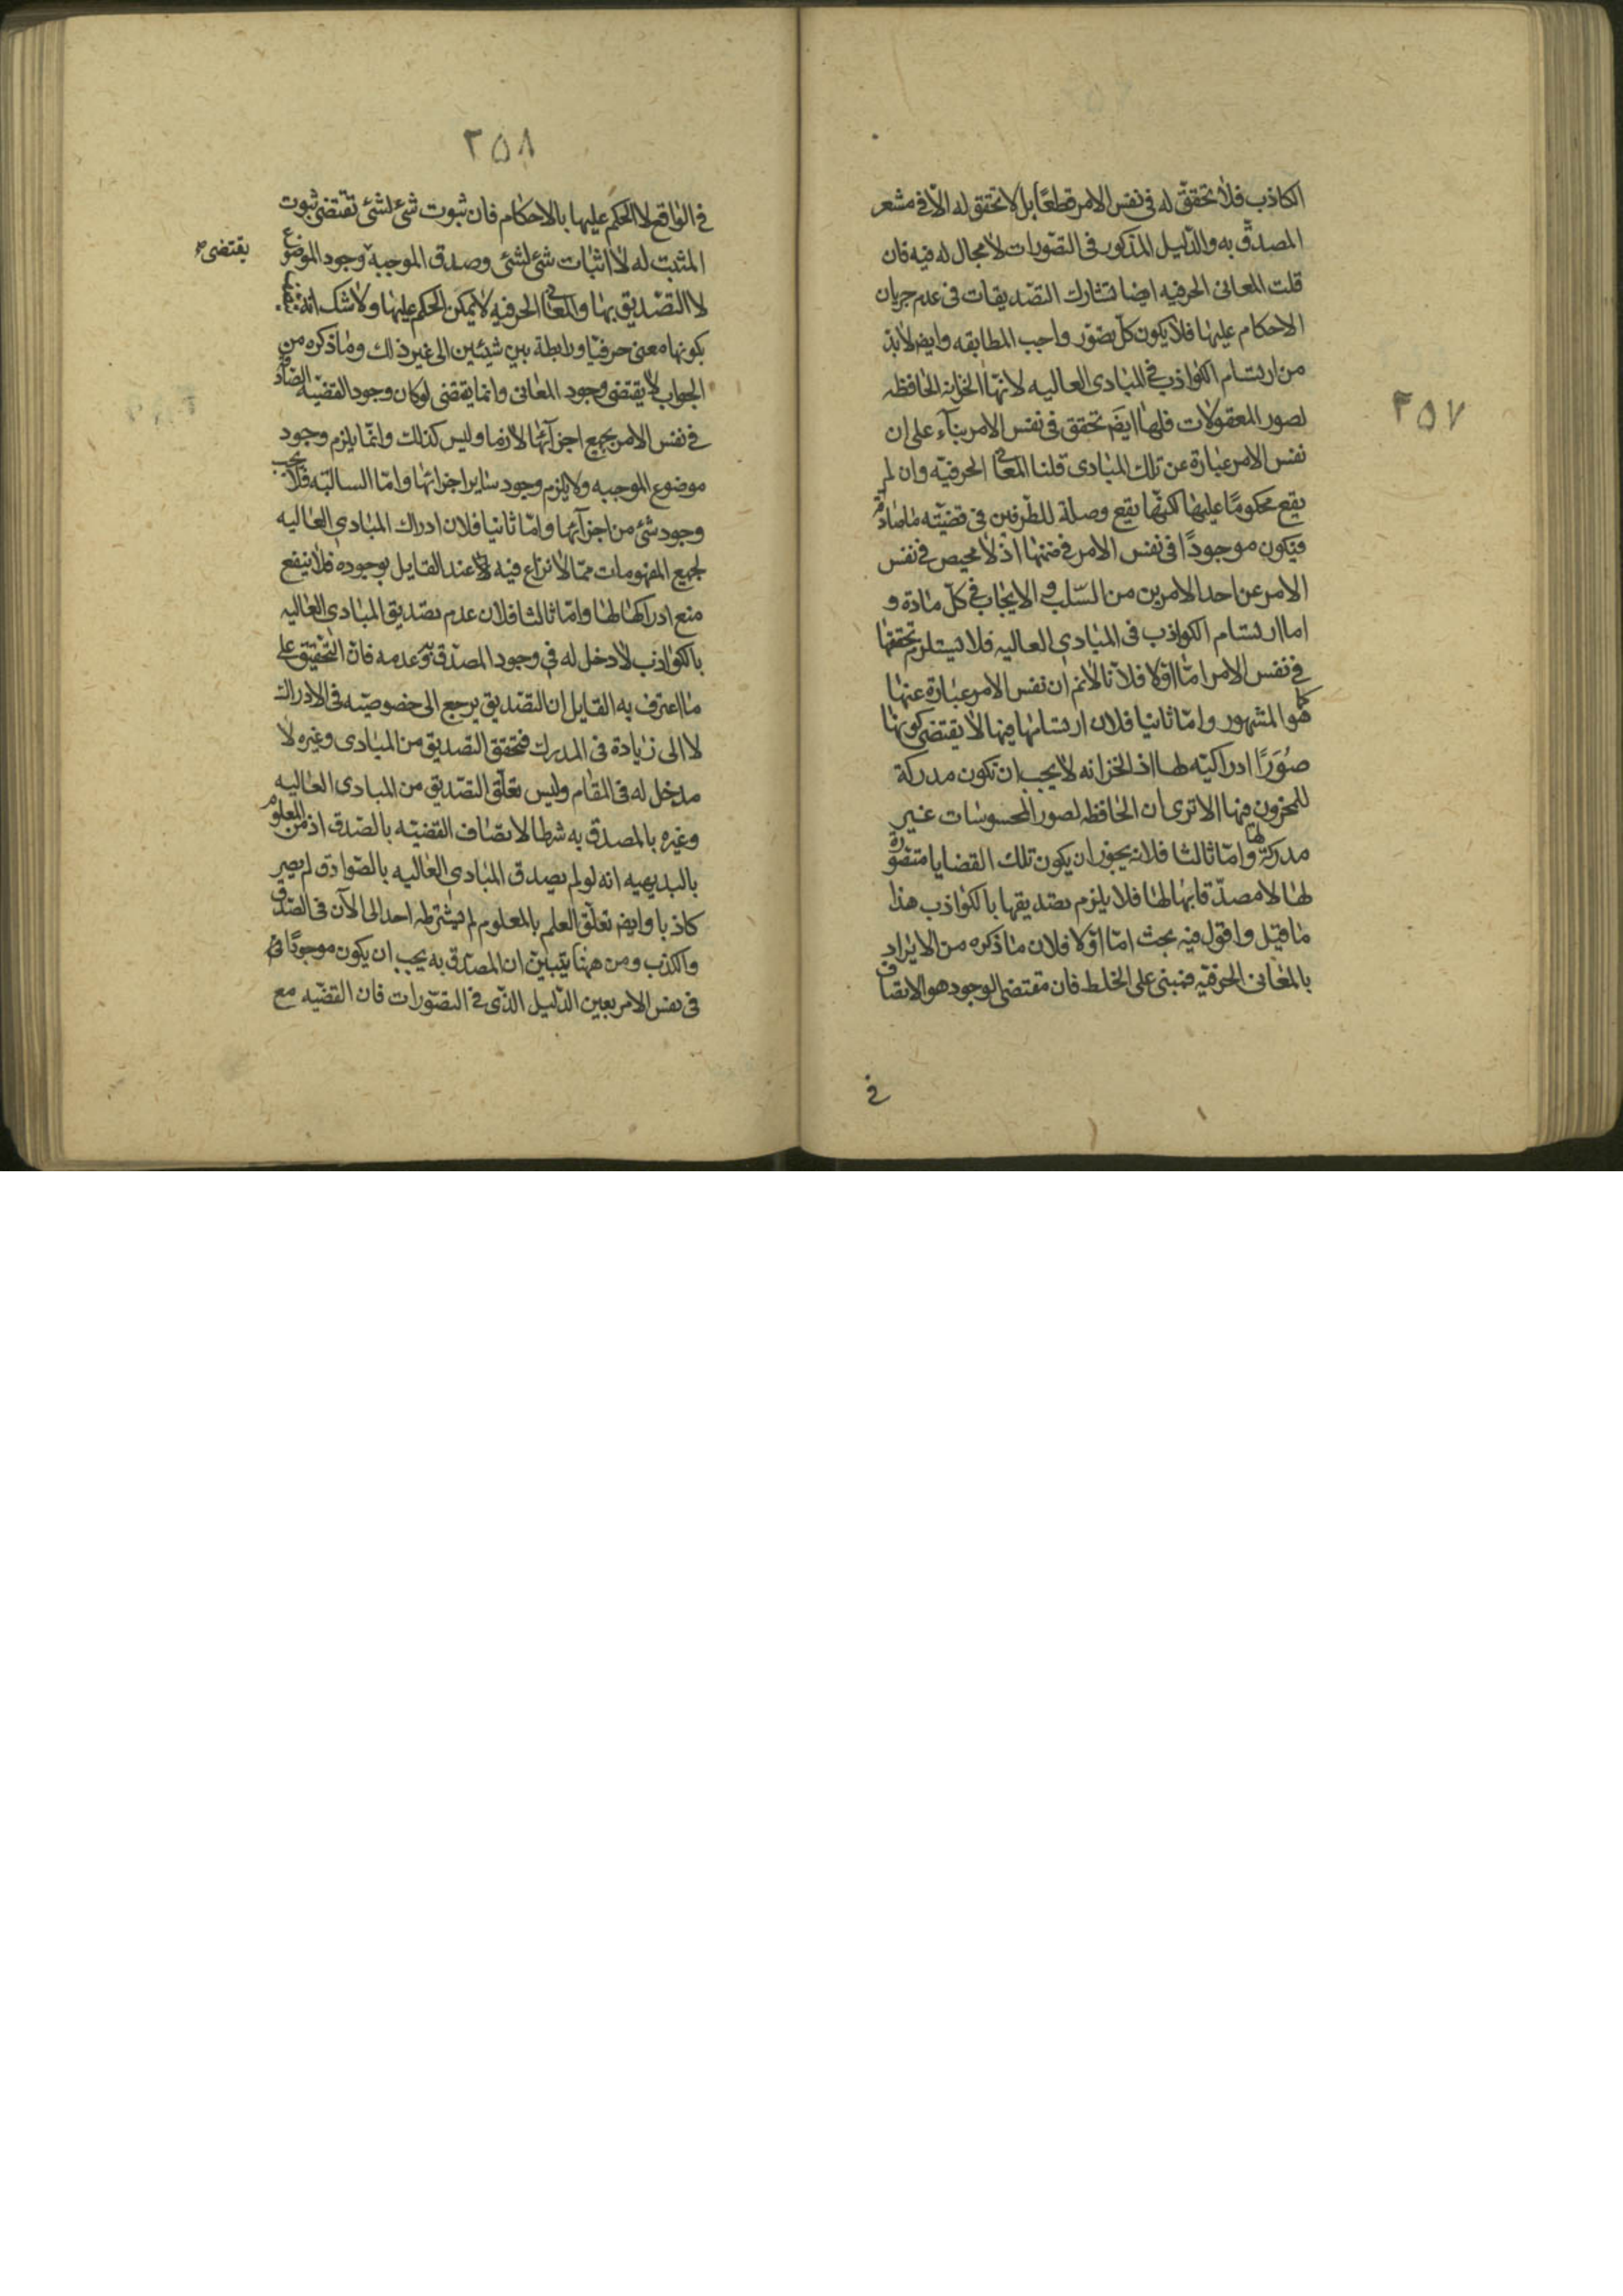 ٢٥٧
الكاذب فلا تحقق له فى نفس الامر قطعًا بل لا تحقق له الّا فى مشعر
المصدق به والدليل المذكور فى التصورات لا مجال له فيه فان
قلت المعانى الحرفيه ايضا تشارك التصديقات فى عدم جريان
الاحكام عليها فلا يكون كل تصوّر واجب المطابقه وايضا لابدّ
من ارتسام الكواذب فى المبادى العاليه لانّها الخزانه الحافظه
لصور المعقولات فلها ايضَ تحقق فى نفس الامر بناء على ان
نفس الامر عبارة عن تلك المبادى قلنا المعانى الحرفيّه وان لم
يقع محكومًا عليها لكنّها يقع وصلة للطّرفين فى قضيّته ما صادقة
فيكون موجودًا فى نفس الامر فى ضمنها اذ لا محيص فى نفس
الامر عن احد الامرين من السّلب و الايجاب فى كلّ مادة و
اما ارتسام الكواذب فى المبادى العاليه فلا يستلزم تحققها
فى نفس الامر امّا اوّلا فلانّا لانم ان نفس الامر عبارة عنها
كما هو المشهور وامّا ثانيا فلان ارتسامها فيها لا يقتضى كونها
صُوَرًا ادراكيّه لها اذ الخزانه لا يجب ان تكون مدركة
للمخزون فيها الا ترى ان الحافظه لصور المحسوسات غير
مدركة لها وامّا ثالثا فلانه يجوز ان يكون تلك القضايا متصورة
لها لا مصدّقا بها لها فلا يلزم تصديقها بالكواذب هذا
ما قيل واقول فيه بحث امّا اوّلا فلان ما ذكره من الايراد
بالمعانى الحرفيّه فمبنى على الخلط فان مقتضى الوجود هو الاتصاف
فى
٢٥٨
فى الواقع لا الحكم عليها بالاحكام فان ثبوت شئ لشئ تقتضى ثبوت
المثبت له لا اثبات شئ لشئ وصدق الموجبة وجود الموضوع
يقتضى
لا التصديق بها والمعانى الحرفيه لا يمكن الحكم عليها ولا شك انه
بكونها معنى حرفيّا ورابطة بين شيئين الى غير ذلك وما ذكره من
الجواب لا يقتضى وجود المعانى وانما يقتضى لو كان وجود القضيّه الصادقه
فى نفس الامر بجميع اجزائها لازما وليس كذلك وانّما يلزم وجود
موضوع الموجبه ولا يلزم وجود ساير اجزائها وامّا السالبّه فلا يجب
وجود شئ من اجزائها وامّا ثانيا فلان ادراك المبادى العاليه
لجميع المفهومات ممّا لا نزاع فيه لا عند القايل بوجوده فلا ينفع
منع ادراكها لها وامّا ثالثا فلان عدم تصديق المبادى العاليه
بالكواذب لا دخل له فى وجود المصدّق به وعدمه فانّ التحقيق على
ما اعترف به القايل ان التصديق يرجع الى خصوصيّه فى الادراك
لا الى زيادة فى المدرك فتحقق التصديق من المبادى وغيره لا
مدخل له فى المقام وليس تعلّق التصديق من المبادى العاليه
وغيره بالمصدق به شرطا لاتصاف القضيّه بالصّدق اذ من المعلوم
بالبديهيه انه لو لم يصدق المبادى العاليه بالصّوادق لم يصير
كاذبا وايضا تعلّق العلم بالمعلوم لم يشترطه احد الى الآن فى الصّدق
والكذب ومن ههنا يتبيّن ان المصدّق به يجب ان يكون موجودًا
فى نفس الامر بعين الدّليل الذّى فى التصوّرات فان القضيّه مع